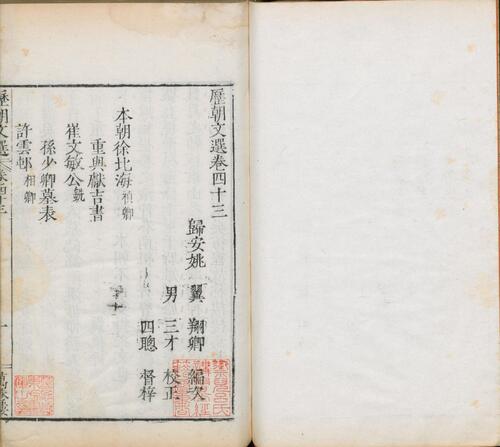 歷朝文選卷四十三
歸安姚 翼 翔卿 編次
男 三才 校正
四聰 督梓
本朝徐北海禎卿
重與獻吉書
崔文敏公銑
孫少卿墓表
許雲邨相卿
歷朝文選 卷四十三 一